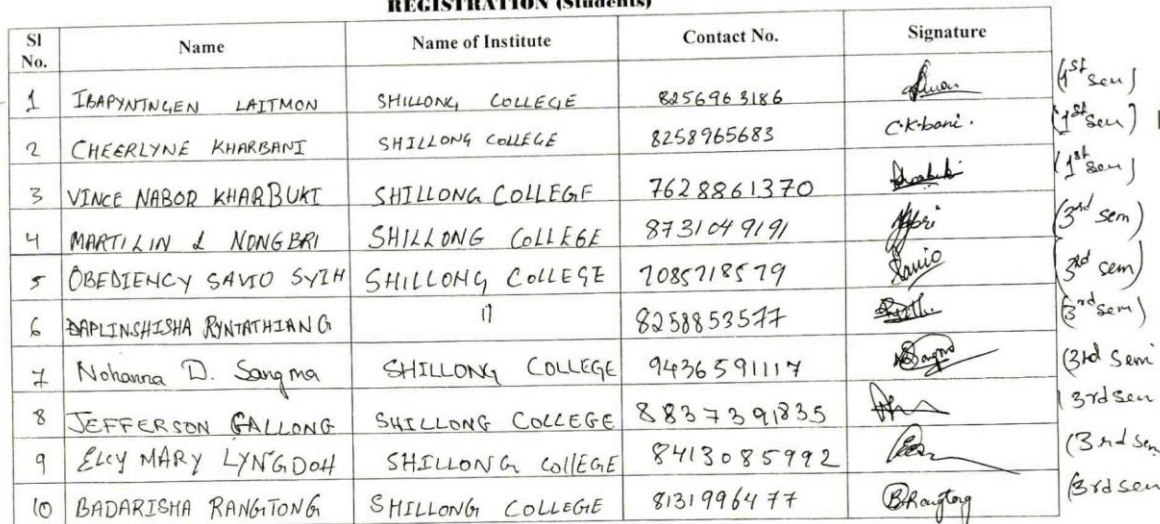 REGISTRATION (Students)
Sl No. Name Name of Institute Contact No. Signature
1 IBAPYNTNGEN LAITMON SHILLONG COLLEGE 8256963186 (1st sem)
2 CHEERLYNE KHARBANI SHILLONG COLLEGE 8258965683 C.K.bani. (1st sem)
3 VINCE NABOR KHARBUKI SHILLONG COLLEGE 7628861370 (1st sem)
4 MARTILIN & NONGBRI SHILLONG COLLEGE 8731049191 (3rd sem)
5 OBEDIENCY SAVIO SYIH SHILLONG COLLEGE 7085718579 Savio (3rd sem)
6 DAPLINSHISHA RYNTATHIANG 11 8258853577 (3rd sem)
7 Nohanna D. Sangma SHILLONG COLLEGE 9436591117 (3rd Sem
8 JEFFERSON GALLONG SHILLONG COLLEGE 8837391835 (3rd sem
9 ELCY MARY LYNGDOH SHILLONG COllEGE 8413085992 (3rd sem
10 BADARISHA RANGTONG SHILLONG COLLEGE 8131996477 BRangtong (3rd sem